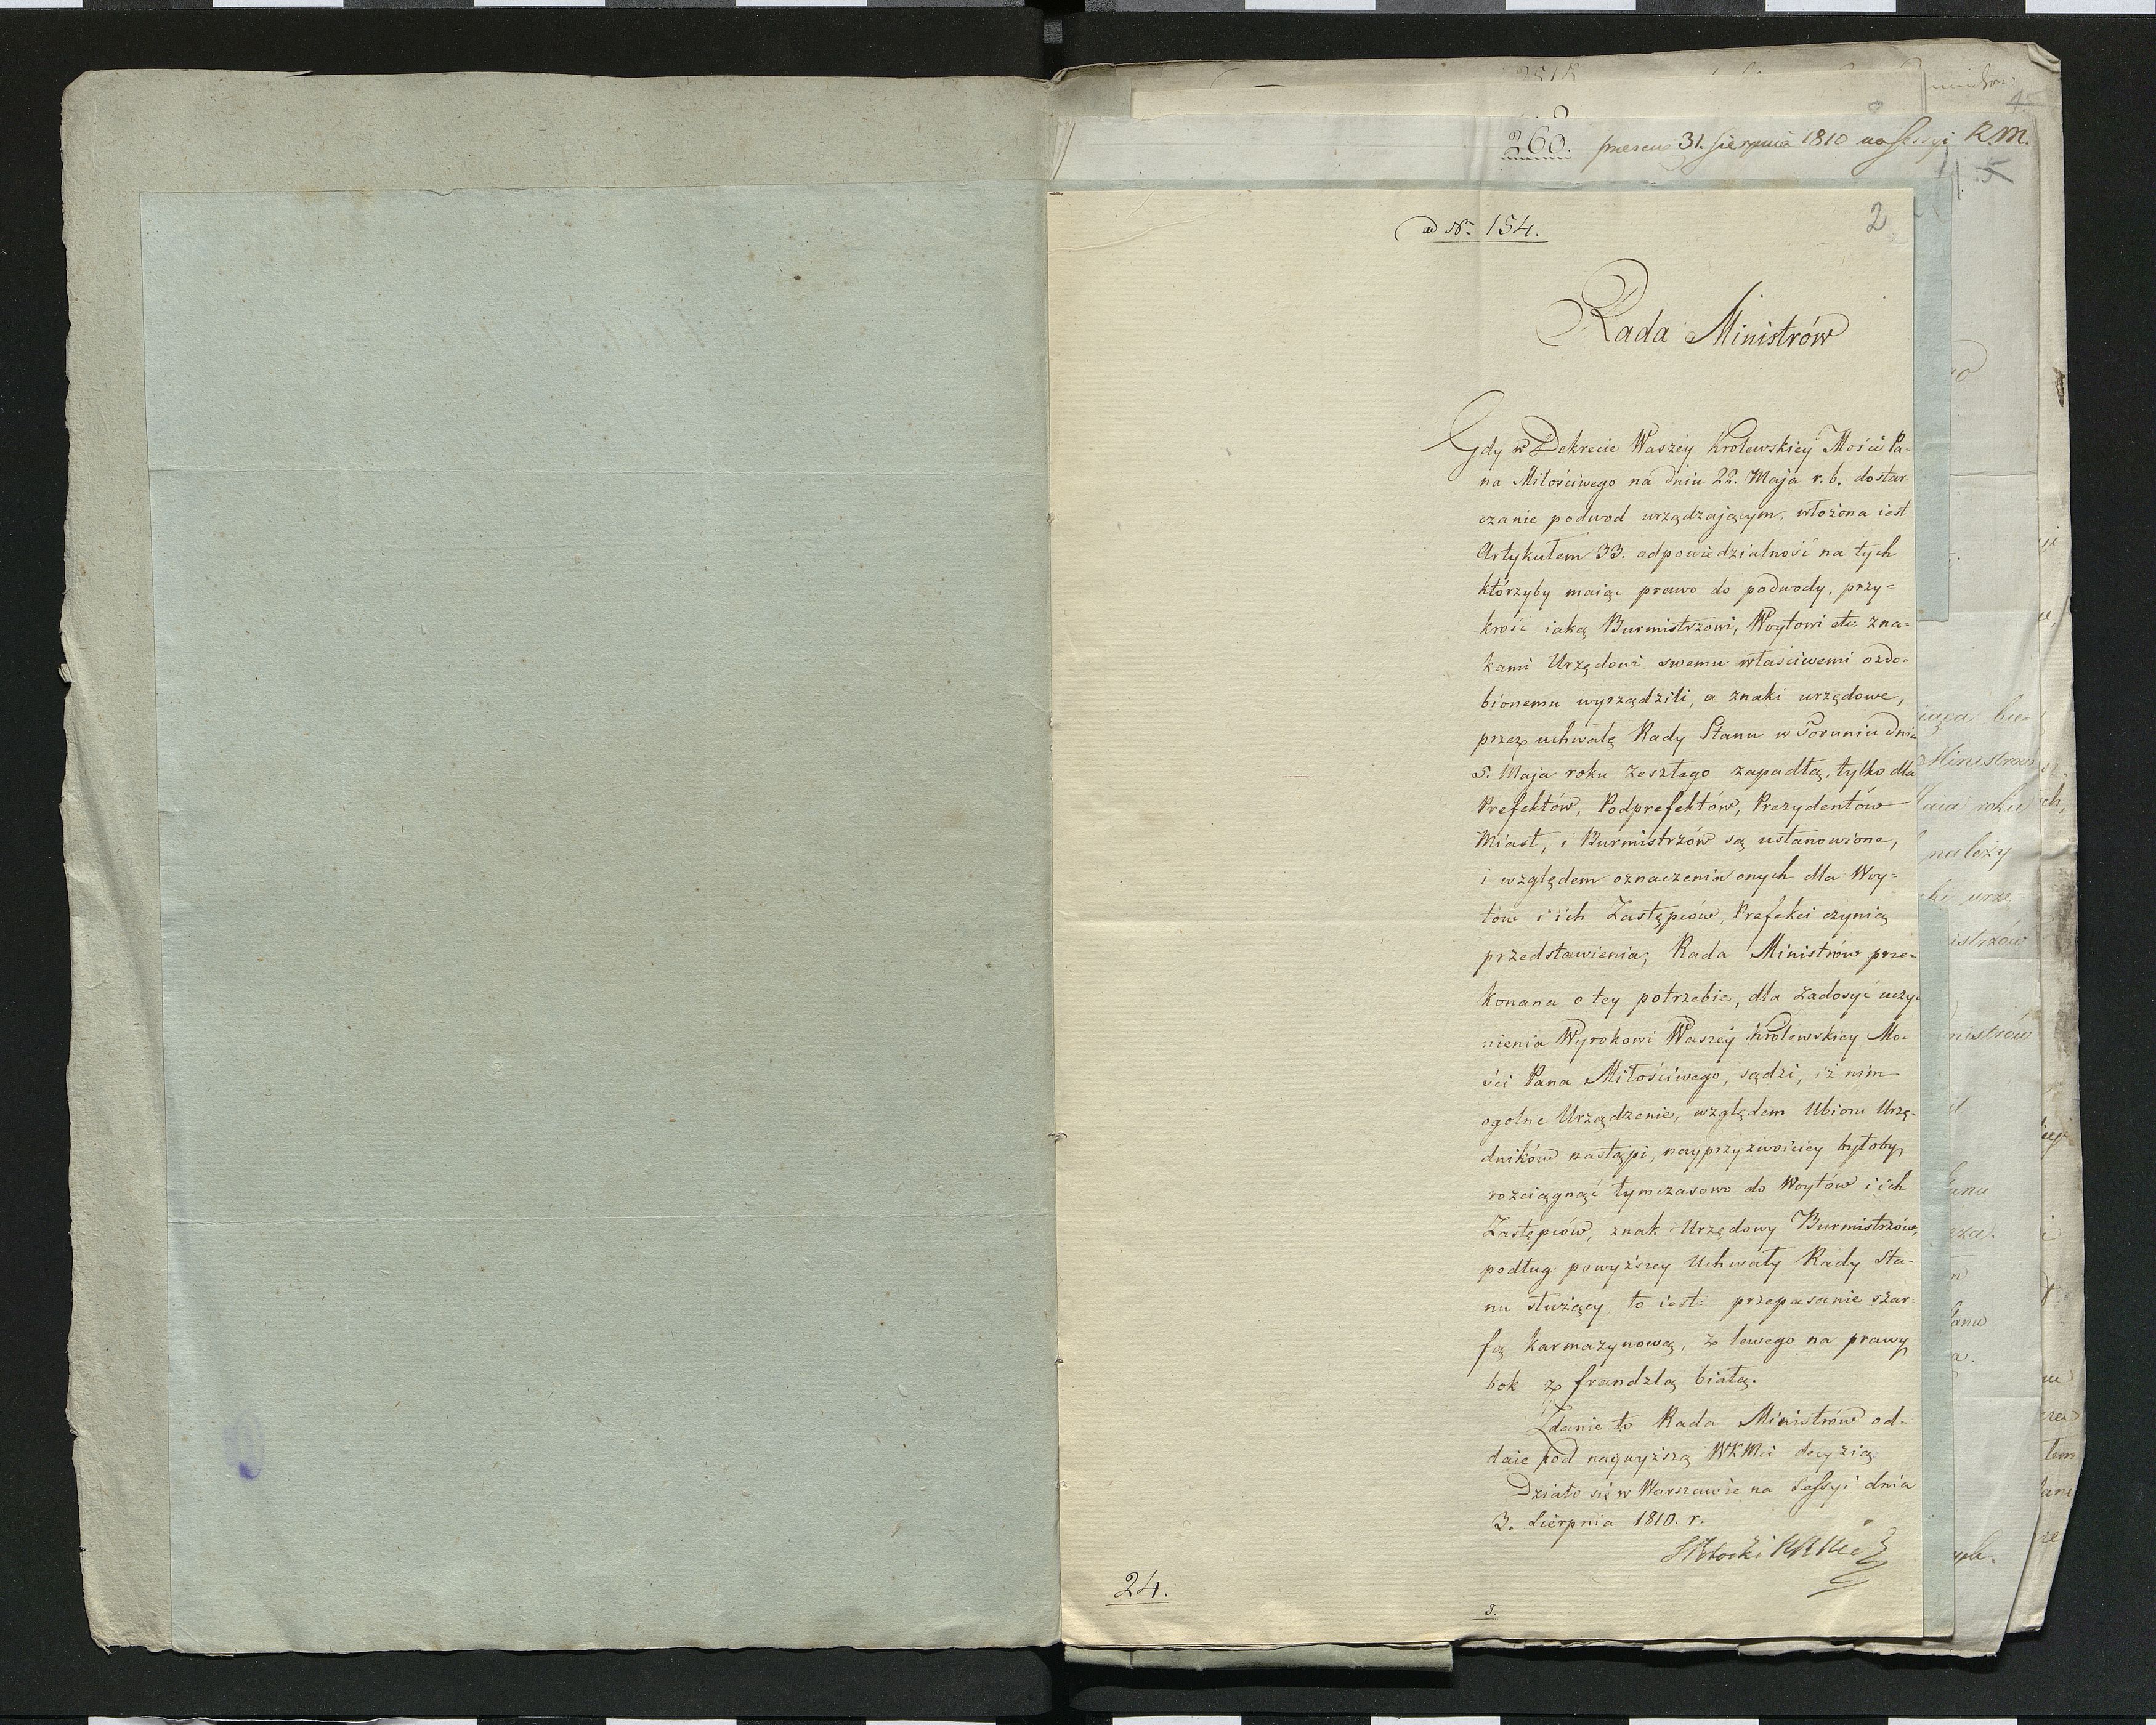 260. 31. sierpnia 1810 na Sessyi R.M.
5
ad Nr 154.
2
Rada Ministrów
Gdy w Dekrecie Waszéy Krolewskiéy Mości Pa=
na Miłościwego na dniu 22. Maja r. b. dostar
czanie podwod urządzającym, włożona iest
Artykułem 33. odpowiedzialność na tych
którzyby maiąc prawo do podwody, przy=
krość iaką Burmistrzowi, Woytowi etc: zna=
kami Urzędowi swemu właściwemi ozdo=
bionemu wyrządzili, a znaki urzędowe,
przez uchwałę Rady Stanu w Toruniu dnia
5. Maja roku zeszłego zapadłą, tylko dla
Prefektów, Podprefektów, Prezydentów
Miast, i Burmistrzów są ustanowione,
i względem oznaczenia onych dla Woy=
tów i ich Zastępców, Prefekci czynią
przedstawienia; Rada Ministrów prze=
konana o tey potrzebie, dla zadosyć uczy=
nienia Wyrokowi Waszéy Krolewskiey Mo=
ści Pana Miłościwego, sądzi, iż nim
ogolne Urządzenie, względem Ubioru Urzę=
dników nastąpi, nayprzyzwoiciey byłoby
rozciągnąć tymczasowo do Woytów i ich
Zastępców, znak Urzędowy Burmistrzów,
podług powyższey Uchwały Rady Sta=
nu służący, to iest: przepasanie szar=
fą karmazynową, z lewego na prawy
bok z frandzlą białą.
Zdanie to Rada Ministrów od=
daie pod naywyższą WKMci decyzią
Działo się w Warszawie na Sessyi dnia
3. Sierpnia 1810. r.
24.